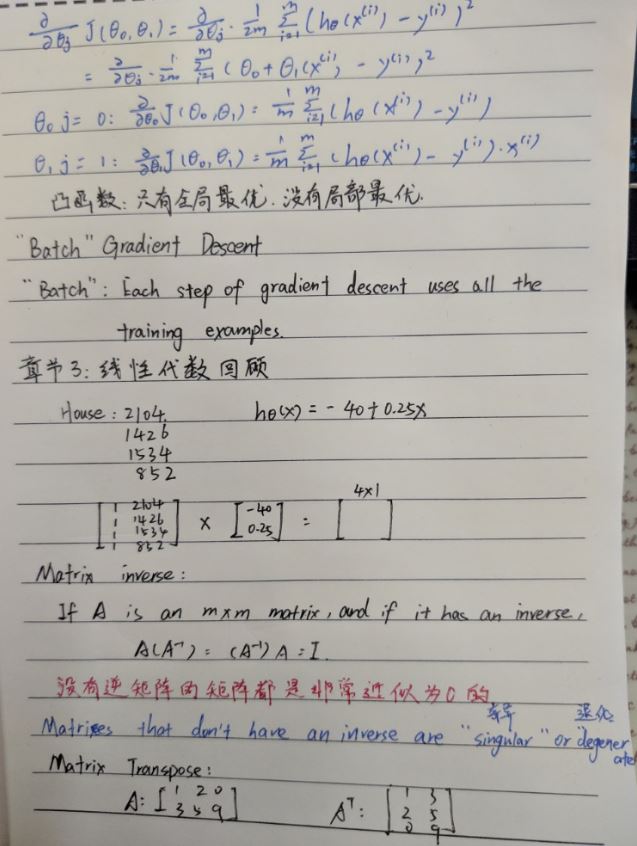 ∂/∂θj J(θ₀,θ₁) = ∂/∂θj · 1/2m Σᵢ₌₁ᵐ (hθ(x⁽ⁱ⁾) − y⁽ⁱ⁾)²
= ∂/∂θj · 1/2m Σᵢ₌₁ᵐ (θ₀ + θ₁(x⁽ⁱ⁾) − y⁽ⁱ⁾)²
θ₀ j = 0: ∂/∂θ₀ J(θ₀,θ₁) = 1/m Σᵢ₌₁ᵐ (hθ(x⁽ⁱ⁾) − y⁽ⁱ⁾)
θ₁ j = 1: ∂/∂θ₁ J(θ₀,θ₁) = 1/m Σᵢ₌₁ᵐ (hθ(x⁽ⁱ⁾) − y⁽ⁱ⁾)·x⁽ⁱ⁾
凸函数: 只有全局最优. 没有局部最优.
"Batch" Gradient Descent
"Batch": Each step of gradient descent uses all the
training examples.
章节3: 线性代数回顾
House: 2104 hθ(x) = −40+0.25x
1426
1534
852
4×1
[1 2104; 1 1426; 1 1534; 1 852] × [−40; 0.25] = [ ]
Matrix inverse:
If A is an m×m matrix, and if it has an inverse,
A(A⁻¹) = (A⁻¹)A = I.
没有逆矩阵的矩阵都是非常近似为0的
奇异 退化
Matrixes that don't have an inverse are "singular" or degenerate
Matrix Transpose:
A: [1 2 0; 3 5 9] Aᵀ: [1 3; 2 5; 0 9]